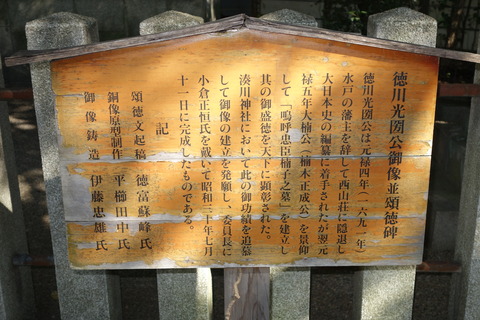 徳川光圀公御像並頌徳碑
徳川光圀公は元禄四年(一六九一年)
水戸の藩主を辞して西山荘に隠退し
大日本史の編纂に着手されたが翌元
禄五年大楠公(楠木正成公)を景仰
して「嗚呼忠臣楠子之墓」を建立し
其の御盛徳を天下に顕彰された。
湊川神社において此の御功績を追慕
して御像の建立を発願し、委員長に
小倉正恒氏を戴いて昭和三十年七月
十一日に完成したものである。
記
頌徳文起稿 徳富蘇峰氏
銅像原型制作 平櫛田中氏
御像鋳造 伊藤忠雄氏